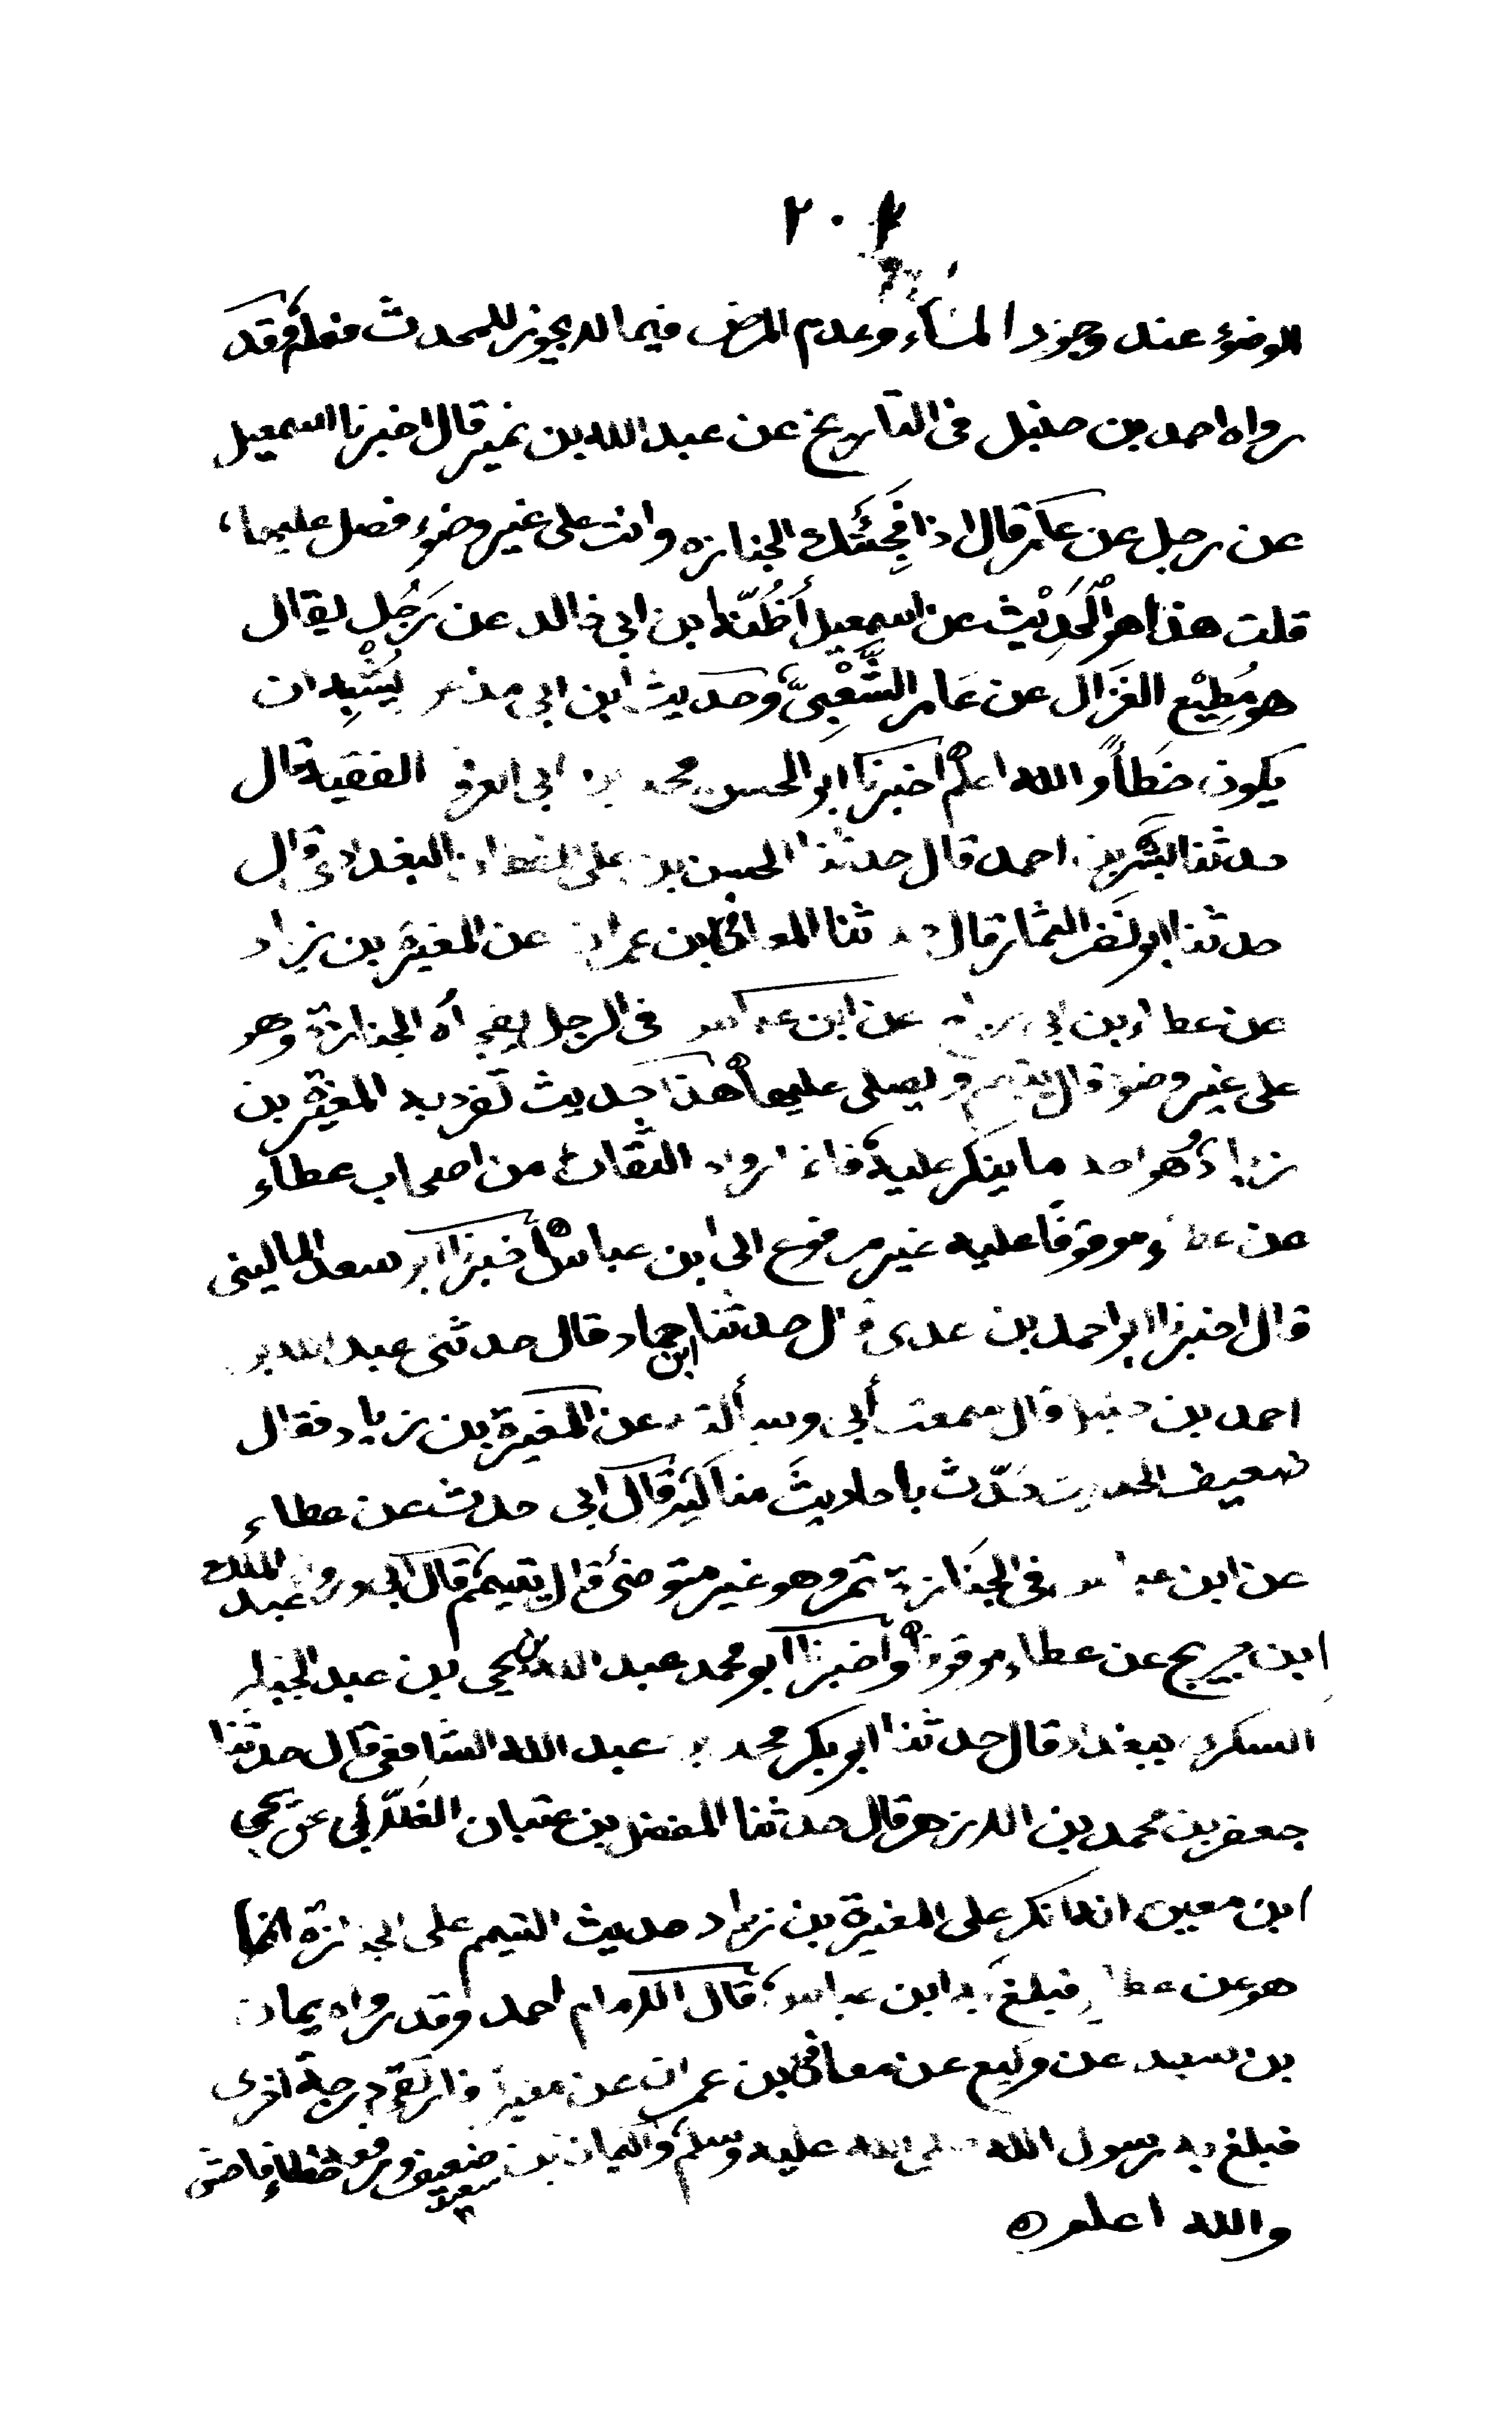 ٢٠٢
الوضوء عند وجود الماء وعدم المرض فيما لا يجوز للمحدث فعله وقد
رواه احمد بن حنبل فى التاريخ عن عبد الله بن نمير قال اخبرنا اسمعيل
عن رجل عن عامر قال اذا فَجِئَتْك الجنازه وانت على غير وضوء فصل عليها،
قلت هذا هو الحَدِيْث عن اسمعيل أظُنّه ابن ابى خالد عن رَجُل يقال
هو مُطِيْع الغَزَال عن عَامر الشَّعْبِىّ وحديث ابن ابى مذعور يُشْبِه ان
يكون خَطَأً والله اعلم اخبرنا ابو الحسن محمد بن ابى المعروف الفقيه قال
حدثنا بشر بن احمد قال حدثنا الحسين بن على القطان البغدادى قال
حدثنا ابو نَصْر التمار قال حدثنا المعافى ابن عمران عن المغيرة بن زياد
عن عطاء بن ابى رباح عن ابن عباس فى الرجل يفجأه الجنازة وهو
على غير وضوء قال يتيمم ويصلى عليها هذا حديث تفرد به المغيرة بن
زياد وهُو احد ما ينكر عليه فانما رواه الثقات من اصحاب عطاء
عن عطاء موقوفًا عليه غير مرفوع الى ابن عباس اخبرنا ابو سعد المالينى
قال اخبرنا ابو احمد بن عدى قال حدثنا ابن حماد قال حدثنى عبد الله بن
احمد بن حنبل قال سمعت أبى وسألته عن المغيرة بن زياد فقال
ضعيف الحديث حَدّث باحاديثَ مناكير قال ابى حدث عن عطاء
عن ابن عباس فى الجَنَازة تمر وهو غير متوضئ قال يتيمم قال ابى ورواه عبد الملك
ابن جريج عن عطاء موقوفًا واخبرنا ابو محمد عبد الله بن يحيى بن عبد الجبار
السكرى ببغداد قال حدثنا ابو بكر محمد بن عبد الله الشافعى قال حدثنا
جعفر بن محمد بن الازهر قال حدثنا المفضل بن غسان الغَلاّبى عن يحيى
ابن معين انه انكر على المغيرة بن زياد حديث التيمم على الجنازة انما
هو عن عطاء فبلغ به ابن عباس، قال الامام احمد وقد رواه يمان
بن سعيد عن وكيع عن معافى بن عمران عن مغيرة فارتقى درجة اخرى
فبلغ به رسول الله صلى الله عليه وسلم واليمان بن سعيد ضعيف ورفعه خطاء فاحش
والله اعلم ه